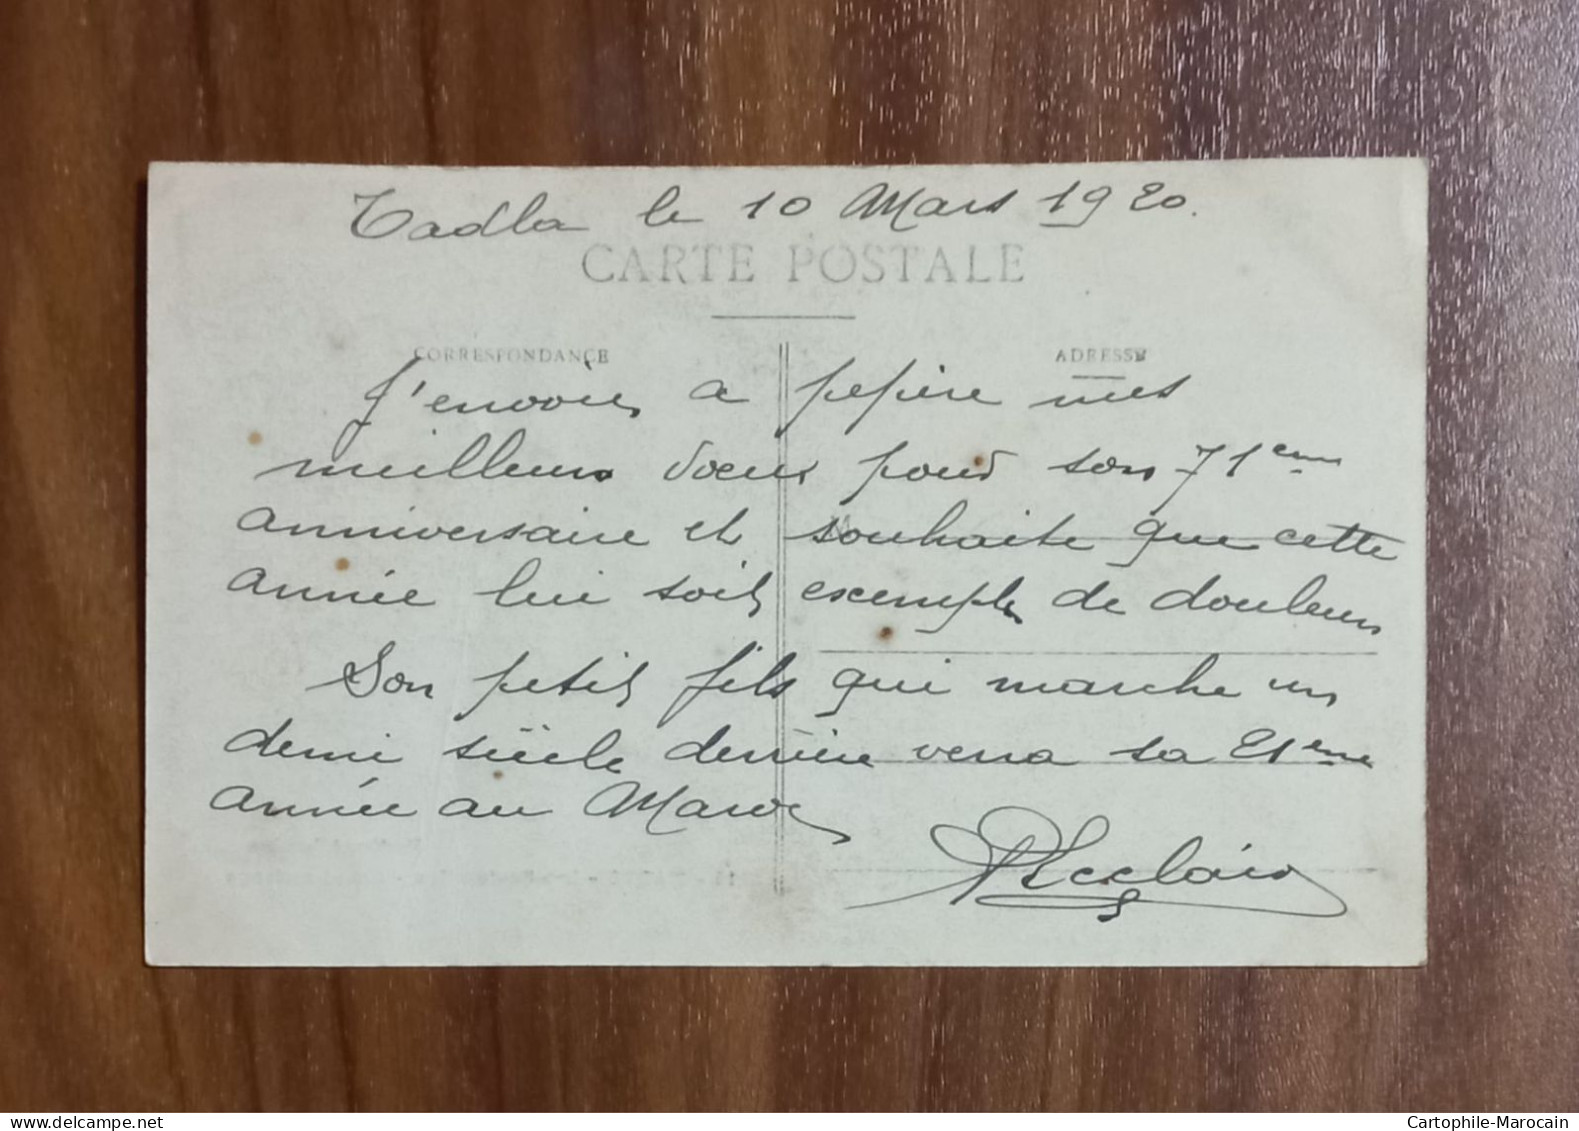 Tadla le 10 Mars 1920.
CARTE POSTALE
CORRESPONDANCE
ADRESSE
J'envoie a pepère mes
meilleurs voeux pour son 71eme
anniversaire et souhaite que cette
année lui soit exempte de douleurs
Son petit fils qui marche un
demi siècle derrière verra sa 21eme
année au Maroc
Leclair
Cartophile-Marocain
delcampe.net